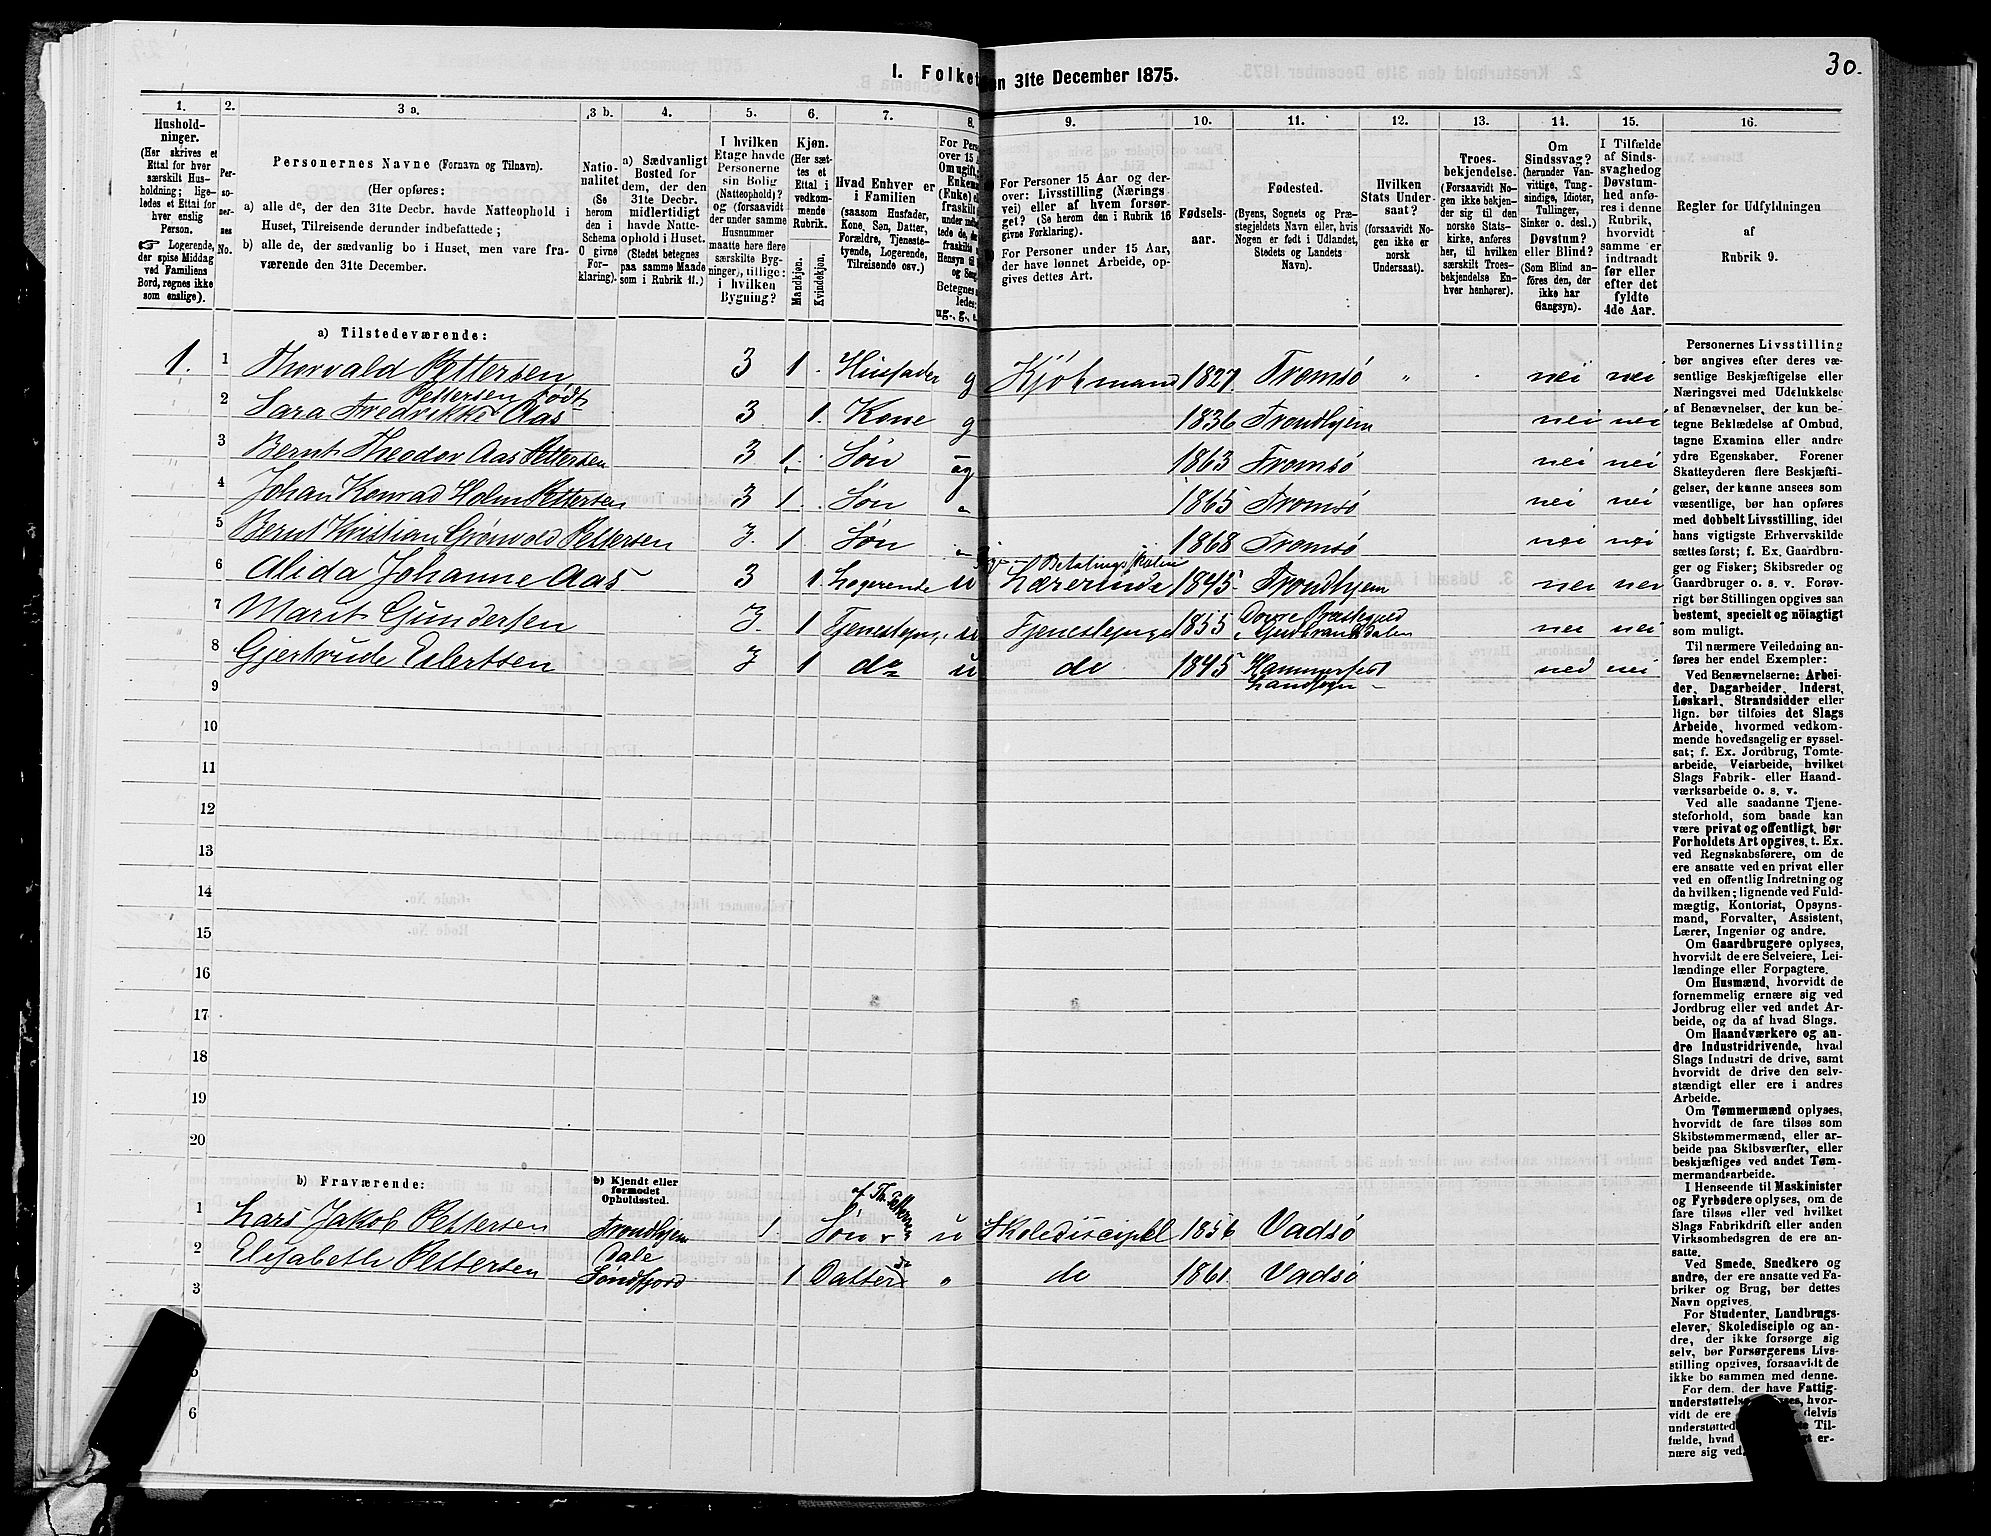 30.
I. Folket
en 31te December 1875.
1.
2.
3 a.
3 b.
4.
5.
6.
7.
8.
9.
10.
11.
12.
13.
14.
15.
16.
Hushold-
ninger.
(Her skrives et
Ettal for hver
særskilt Hus-
holdning; lige-
ledes et Ettal for
hver enslig
Person.
☞ Logerende,
der spise Middag
ved Familiens
Bord, regnes ikke
som enslige).
Per-
so-
ner-
nes
No.
Personernes Navne (Fornavn og Tilnavn).
(Her opføres:
a) alle de, der den 31te Decbr. havde Natteophold i
Huset, Tilreisende derunder indbefattede;
b) alle de, der sædvanlig bo i Huset, men vare fra-
værende den 31te December.
Natio-
nalitet
(Se
herom
den i
Schema
O givne
For-
klaring).
a) Sædvanligt
Bosted for
dem, der den
31te Decbr.
midlertidigt
havde Natte-
ophold i Huset.
(Stedet betegnes
paa samme Maade
som i Rubrik 11.)
I hvilken
Etage havde
Personerne
sin Bolig
(Natteophold)?
og (forsaavidt
der under samme
Husnummer
maatte høre flere
særskilte Byg-
ninger), tillige:
i hvilken
Bygning?
Kjøn.
(Her sæt-
tes et
Ettal i
vedkom-
mende
Rubrik.
Mandkjøn.
Kvindekjøn.
Hvad Enhver er
i Familien
(saasom Husfader,
Kone, Søn, Datter,
Forældre, Tjeneste-
tyende, Logerende,
Tilreisende osv.)
For Perso
over 15 A
Om ugift,
Enkema
(Enke) el
fraskilt
under indbe
tede de, de
fraskilte
Hensyn til
og Seng
Betegnes
ledes:
ug., g., e.
For Personer 15 Aar og der-
over: Livsstilling (Nærings-
vei) eller af hvem forsør-
get? (Se herom den i Rubrik 16
givne Forklaring).
For Personer under 15 Aar,
der have lønnet Arbeide, op-
gives dettes Art.
Fødsels-
aar.
Fødested.
(Byens, Sognets og Præ-
stegjeldets Navn eller, hvis
Nogen er født i Udlandet,
Stedets og Landets
Navn).
Hvilken
Stats Under-
saat?
(forsaavidt No-
gen ikke er
norsk
Undersaat).
Troes-
bekjendelse.
(Forsaavidt No-
gen ikke bekjen-
der sig til den
norske Stats-
kirke, anføres
her, til hvilken
særskilt Troes-
bekjendelse En-
hver henhører).
Om
Sindssvag?
(herunder Van-
vittige, Tung-
sindige, Idioter,
Tullinger,
Sinker o. desl.)
Døvstum?
eller Blind?
(Som Blind an-
føres den, der
ikke har
Gangsyn).
I Tilfælde
af Sinds-
svaghed og
Døvstum-
hed anfø-
res i denne
Rubrik,
hvorvidt
samme er
indtraadt
før eller
efter det
fyldte
4de Aar.
Regler for Udfyldningen
af
Rubrik 9.
a) Tilstedeværende:
1. 1 Thorvald Pettersen 3 1. Husfader g Kjøbmand 1827. Tromsø „ . nei nei
Pettersen født
2 Sara Fredrikke Aas 3 1. Kone g 1836 Trondhjem nei nei
3 Bernt Theodor Aas Pettersen 3 1. Søn ug 1863 Tromsø nei nei
4 Johan Konrad Holm Pettersen 3 1. Søn „ 1865 Tromsø nei nei
5 Bernt Kristian Grønvold Pettersen 3. 1 Søn „ 1868 Tromsø nei nei
6 Alida Johanne Aas 3 1. Logerende u Lærerinde 1845 Trondhjem nei nei
7 Marit Gundersen 3. 1 Tjenestepige u Tjenestepige 1855 Dovre Præstegjeld
i Gudbrandsdalen nei nei
8 Gjertrude Eilertsen 3 1 do u do 1845 Hammerfest
Landsogn - nei nei
9
10
11
12
13
14
15
16
17
18
19
20
b) Fraværende:
b) Kjendt eller
formodet
Opholdssted.
af Th. Pettersen
1 Lars Jakob Pettersen Trondhjem 1. Søn u Skolediscipel 1856 Vadsø
2 Elisabeth Pettersen Dale
Søndfjord 1 Datter do „ do 1861 Vadsø
3
5
6
Personernes Livsstilling
bør angives efter deres væ-
sentlige Beskjæftigelse eller
Næringsvei med Udelukkelse
af Benævnelser, der kun be-
tegne Beklædelse af Ombud,
tagne Examina eller andre
ydre Egenskaber. Forener
Skatteyderen flere Beskjæfti-
gelser, der kunne ansees som
væsentlige, bør han opføres
med dobbelt Livsstilling, idet
hans vigtigste Erhvervskilde
sættes først; f. Ex. Gaardbru-
ger og Fisker; Skibsreder og
Gaardbruger o. s. v. Forøv-
rigt bør Stillingen opgives saa
bestemt, specielt og nöiagtigt
som muligt.
Til nærmere Veiledning an-
føres her endel Exempler:
Ved Benævnelserne: Arbei-
der, Dagarbeider, Inderst,
Løskarl, Strandsidder eller
lign. bør tilføies det Slags
Arbeide, hvormed vedkom-
mende hovedsagelig er syssel-
sat; f. Ex. Jordbrug, Tomte-
arbeide, Veiarbeide, hvilket
Slags Fabrik- eller Haand-
værksarbeide o. s. v.
Ved alle saadanne Tjene-
steforhold, som baade kan
være privat og offentligt, bør
Forholdets Art opgives, t. Ex.
ved Regnskabsførere, om de
ere ansatte ved en privat eller
ved en offentlig Indretning og
da hvilken; lignende ved Fuld-
mægtig, Kontorist, Opsyns-
mand, Forvalter, Assistent,
Lærer, Ingeniør og andre.
Om Gaardbrugere oplyses,
hvorvidt de ere Selveiere, Lei-
lændinge eller Forpagtere.
Om Husmænd, hvorvidt de
fornemmelig ernære sig ved
Jordbrug eller ved andet Ar-
beide, og da af hvad Slags.
Om Haandværkere og an-
dre Industridrivende, hvad
Slags Industri de drive, samt
hvorvidt de drive den selv-
stændigt eller ere i andres
Arbeide.
Om Tømmermænd oplyses,
hvorvidt de fare tilsøs som
Skibstømmermænd, eller ar-
beide paa Skibsværfter, eller
beskjæftiges ved andet Tøm-
mermandsarbeide.
I Henseende til Maskinister
og Fyrbødere oplyses, om de
fare tilsøs eller ved hvilket
Slags Fabrikdrift eller anden
Virksomhedsgren de ere an-
satte.
Ved Smede, Snedkere og
andre, der ere ansatte ved Fa-
briker og Brug, bør dettes
Navn opgives.
For Studenter, Landbrugs-
elever, Skoledisciple og an-
dre, der ikke forsørge sig
selv, bør Forsørgerens Livs-
stilling opgives, forsaavidt de
ikke bo sammen med denne.
For dem, der have Fattig-
understøttelse hvor-
vidt de ere delvis
understøttede Til-
fælde, hvad er-
nære sig ved.